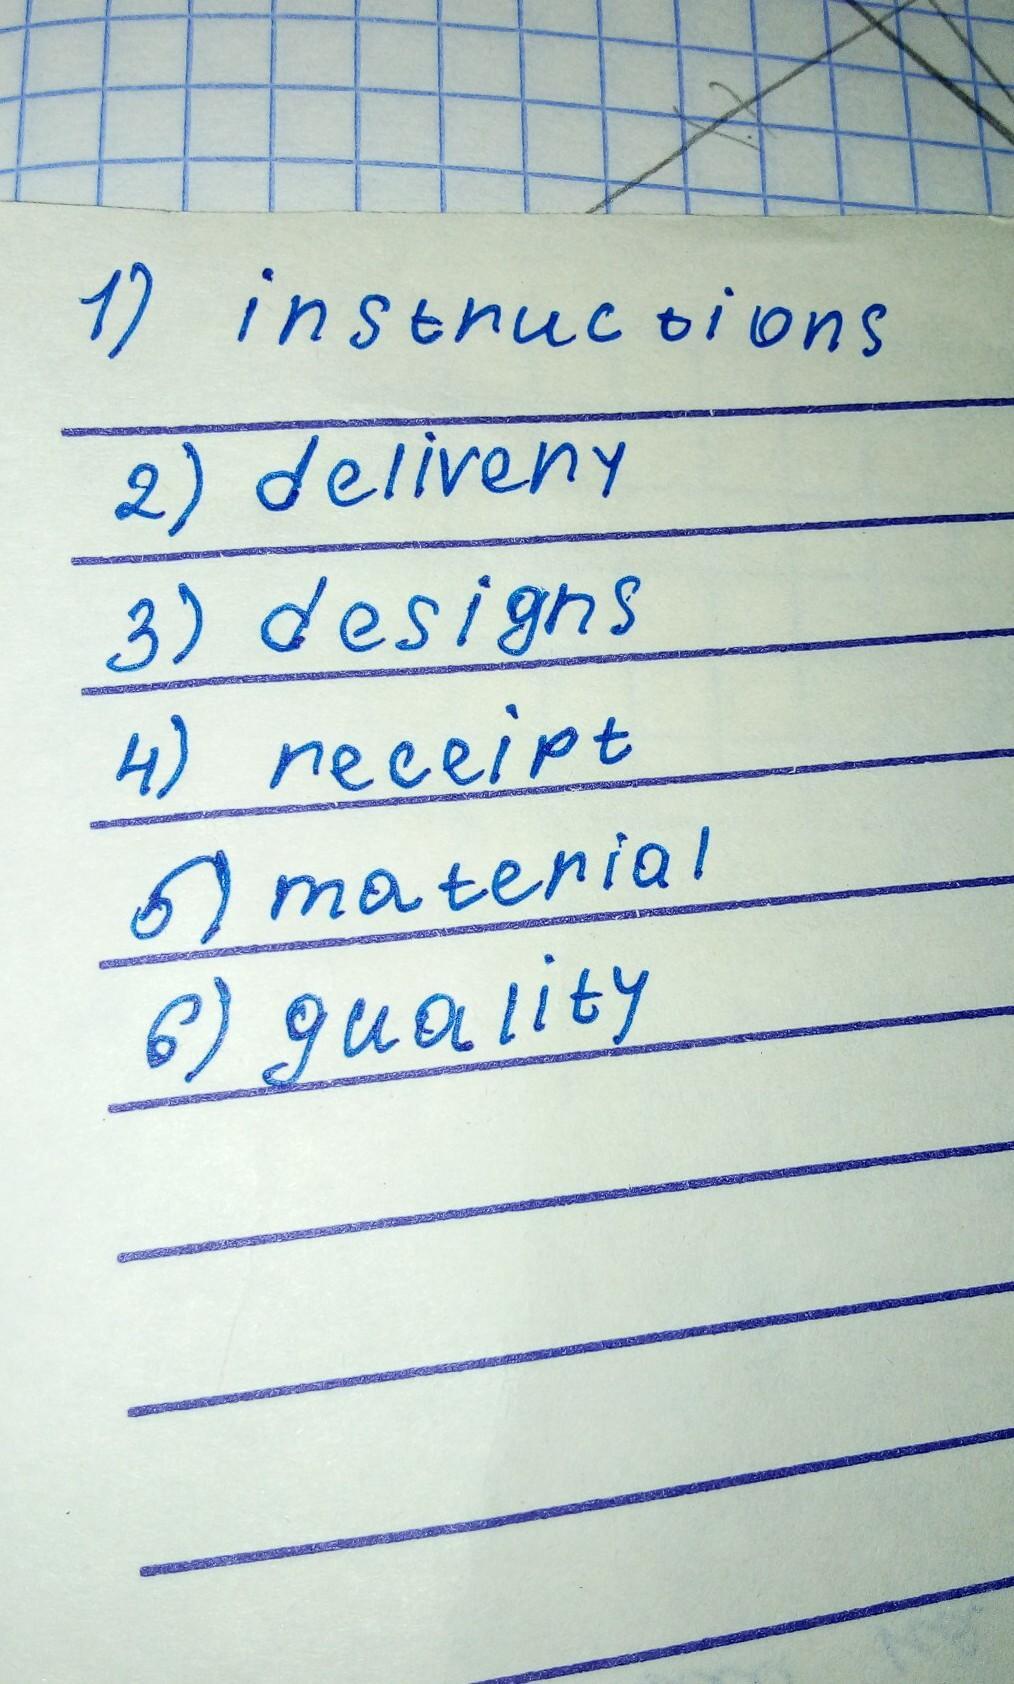 1) instructions
2) delivery
3) designs
4) receipt
5) material
6) quality